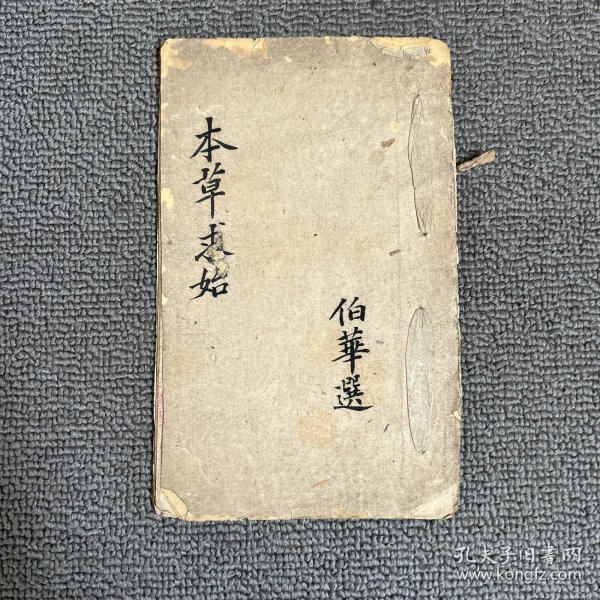 本草求始
伯華選
孔夫子旧書网
www.kongfz.com